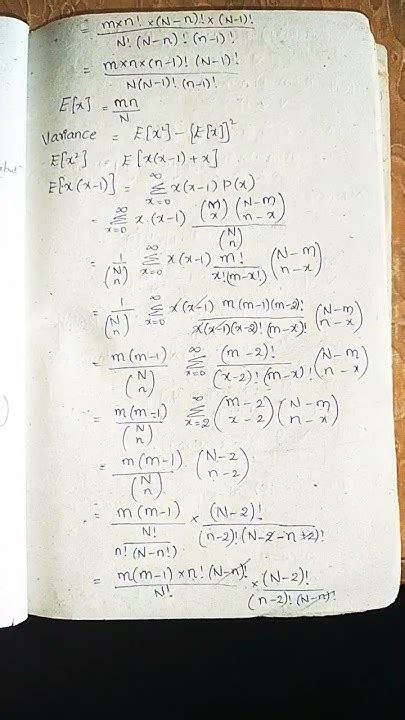 = m×n! ×(N-n)! ×(N-1)! / N! (N-n)! (n-1)!
= m×n×(n-1)! (N-1)! / N(N-1)! (n-1)!
E[x] = mn/N
Variance = E[x²] - [E[x]]²
E[x²] = E[x(x-1)+x]
E[x(x-1)] = ∞Σx=0 x(x-1) P(x)
= ∞Σx=0 x.(x-1) (m x) (N-m n-x) / (N n)
= 1/(N n) ∞Σx=0 x(x-1) m!/x!(m-x!) (N-m n-x)
= 1/(N n) . ∞Σx=0 x(x-1) m(m-1)(m-2)! / x(x-1)(x-2)! (m-x)! (N-m n-x)
= m(m-1)/(N n) ∞Σx=0 (m-2)! / (x-2)! (m-x)! (N-m n-x)
= m(m-1)/(N n) ∞Σx=2 (m-2 x-2) (N-m n-x)
= m(m-1)/(N n) . (N-2 n-2)
= m(m-1) / N!/n!(N-n)! × (N-2)! / (n-2)! (N-2-n+2)!
= m(m-1) ×n! (N-n)! / N! × (N-2)! / (n-2)! (N-n)!